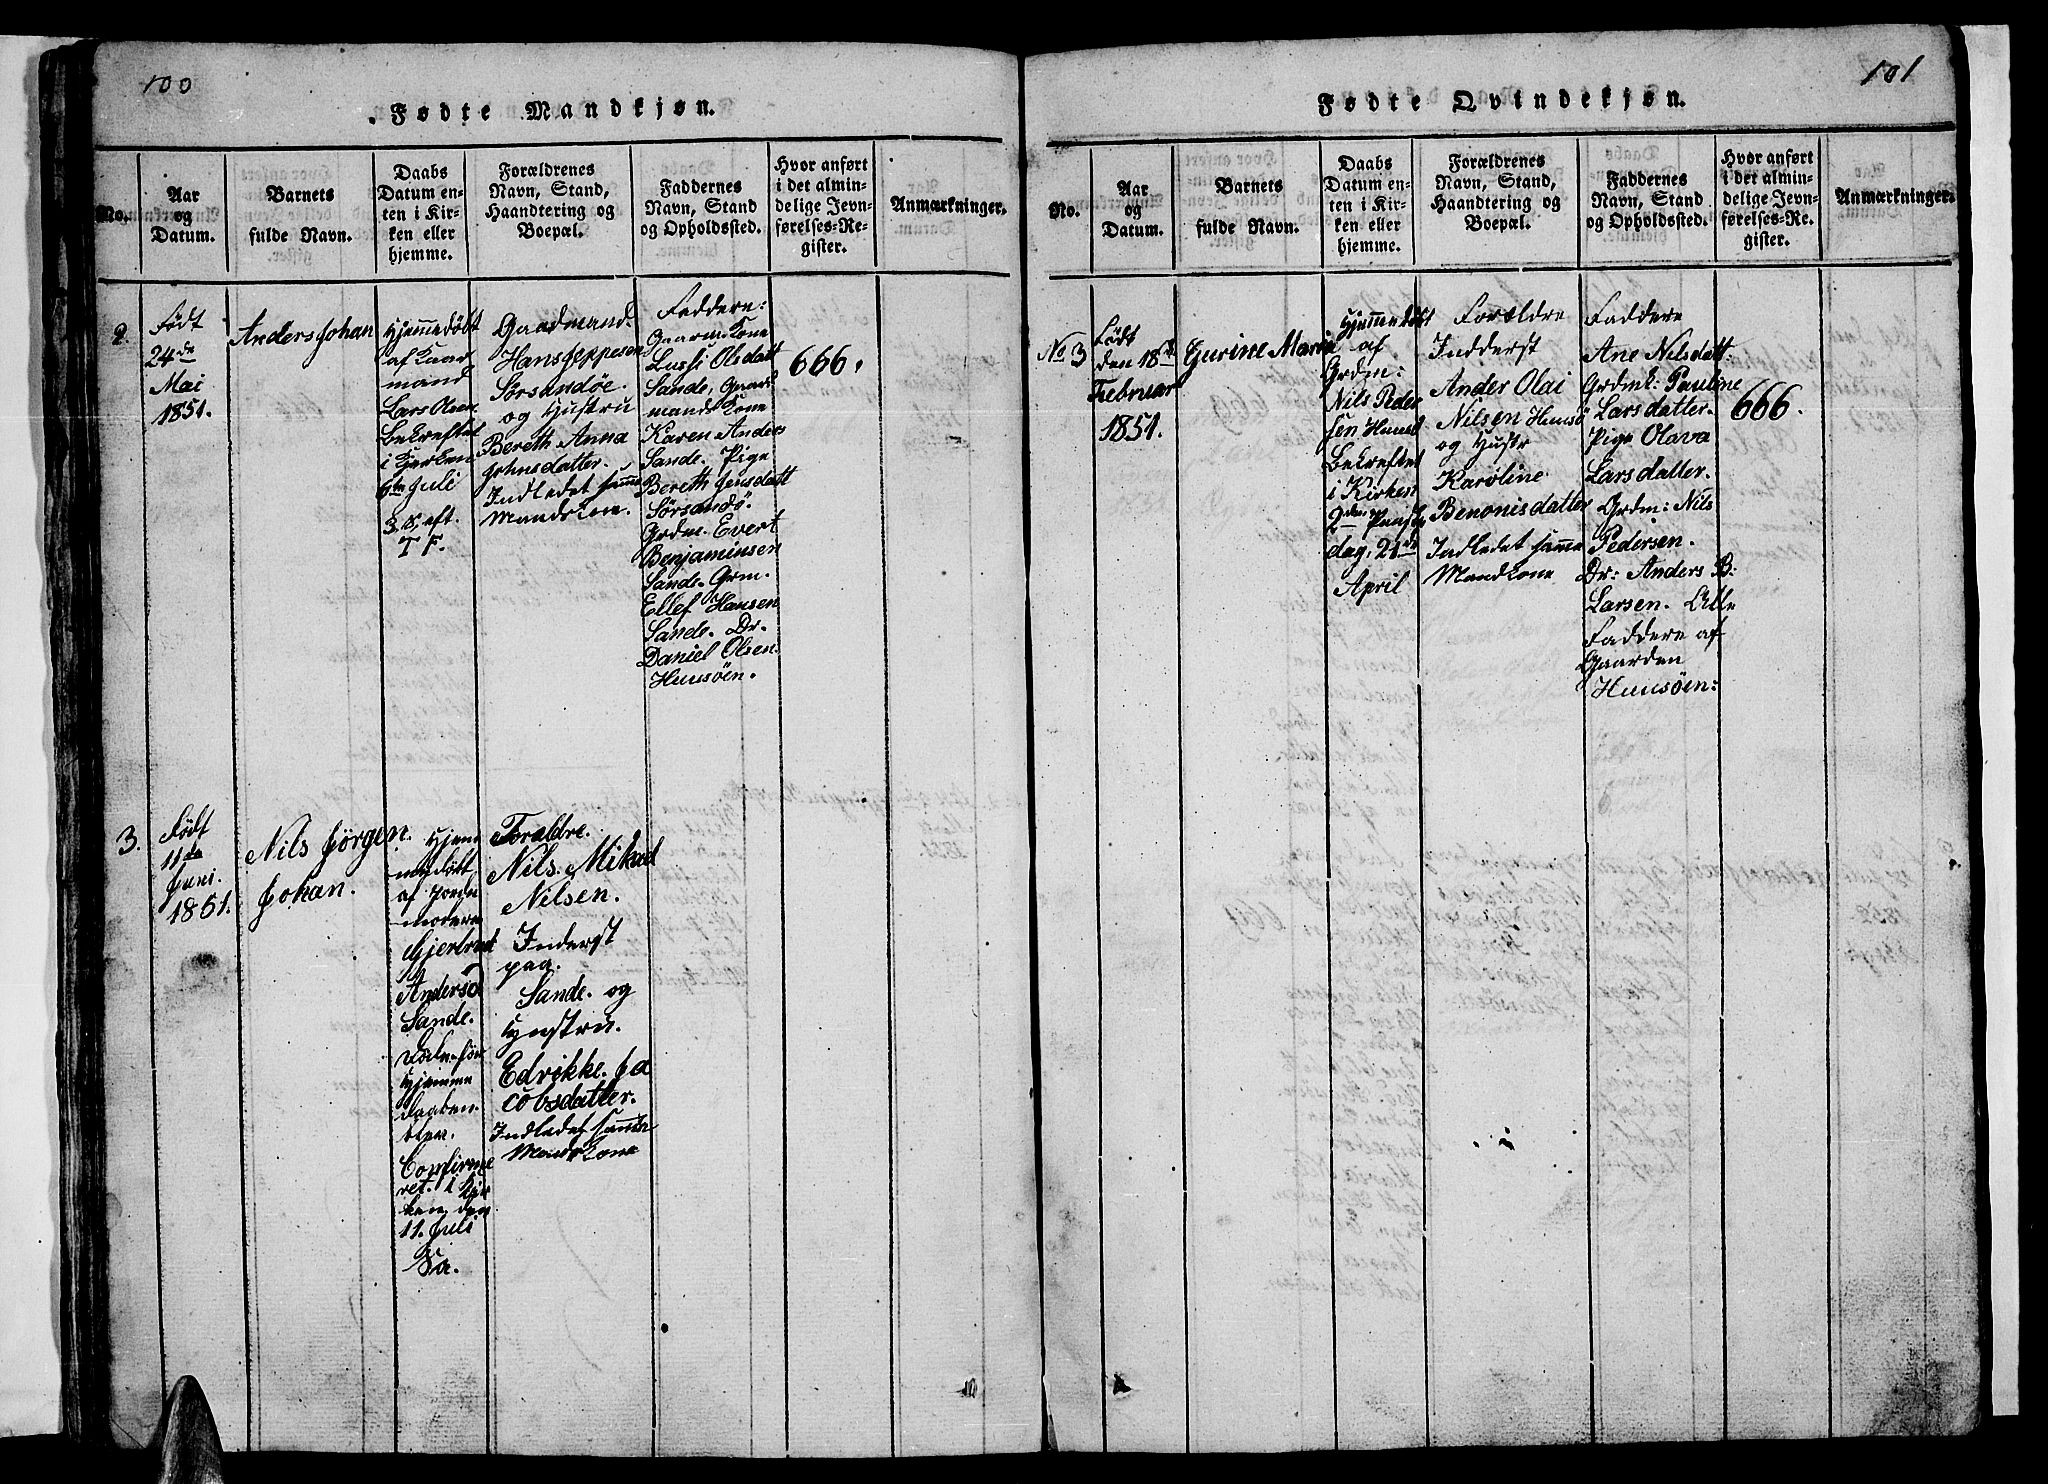 100
Fødte Mandkjøn.
No.
Aar
og
Datum.
Barnets
fulde Navn.
Daabs
Datum en-
ten i Kir-
ken eller
hjemme.
Forældrenes
Navn, Stand,
Haandtering og
Boepæl.
Faddernes
Navn, Stand
og Opholdssted.
Hvor anført
i det almin-
delige Jevn-
førelses-Re-
gister.
Anmærkninger.
2.
Født
24de
Mai
1851.
Anders Johan
Hjemmedøbt
af Gaar
mand
Lars Olsen
Bekreftet
i Kjerken
6te Juli
3. S, eft.
T F.
Gaadmand.
Hans Jeppesen
Sørsandøe.
og Hustru
Bereth Anna
Johnsdatter.
Indledet samme
Mandskone.
Faddere:
Gaarm. Kone
Lussi Olsdatt
Sande, Gaard
mands Kone
Karen Anders
Sande. Pige
Bereth Jensdatt
Sørsandø.
Grdm. Evert
Benjaminsen
Sande. Grm.
Ellef Hansen
Sande. Dr.
Daniel Olsen
Huusøen.
666.
3.
Født
11de
Juni.
1851.
Nils Jørgen.
Johan.
Hjem
medøbt
af Jorde
moderen
Gjertrud
Andersd
Sande.
Hjemme
daaben
Confirme
ret. i Kir
ken, den
11. Juli
Forældre.
Nils. Mikael
Nilsen.
Inderst
paa.
Sande. og
Hustru.
Edvikke. Ja
cobsdatter.
Indledet samme
Mandskone
101
Fødte Qvindekjøn.
No.
Aar
og
Datum.
Barnets
fulde Navn.
Daabs
Datum en-
ten i Kir-
ken eller
hjemme.
Forældrenes
Navn, Stand,
Haandtering og
Boepæl.
Faddernes
Navn, Stand
og Opholdssted.
Hvor anført
i det almin-
delige Jevn-
førelses-Re-
gister.
Anmærkninger.
No 3
Født
den 18de
Februar
1851.
Gurine Maria
Hjemmedøbt
af
Grdm:
Nils Peder
sen Huusø
Bekreftet
i Kirken
2den Paaske
dag, 21de
April
Forældre
Indderst
Ander Olai
Nilsen Huusø
og Hustr
Karoline
Benonisdatter
Indledet samme
Mandkone
Faddere
Ane Nilsdatt:
Grdmk: Pauline
Larsdatter.
Pige Olava
Larsdatter.
Grdm: Nils
Pedersen.
Dr: Anders B:
Larsen. Alle
Faddere af
Gaarden
Huusøen:
666.